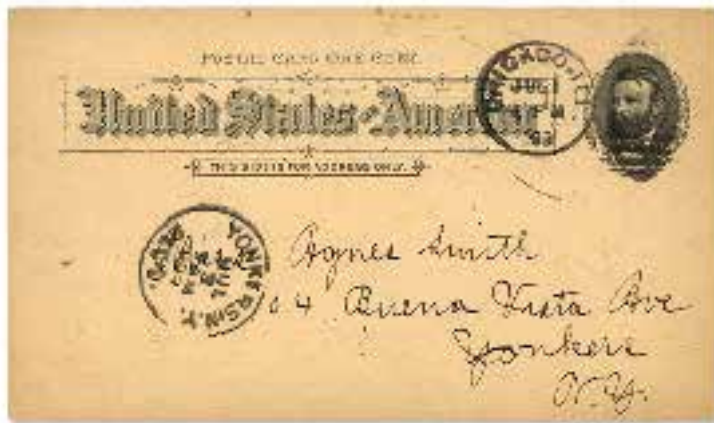 POSTAL CARD ONE CENT.
United States of America
THIS SIDE IS FOR ADDRESS ONLY.
CHICAGO, ILL.
93
YONKERS N.Y.
REC'D.
Agnes Smith
64 Buena Vista Ave
Yonkers
N.Y.